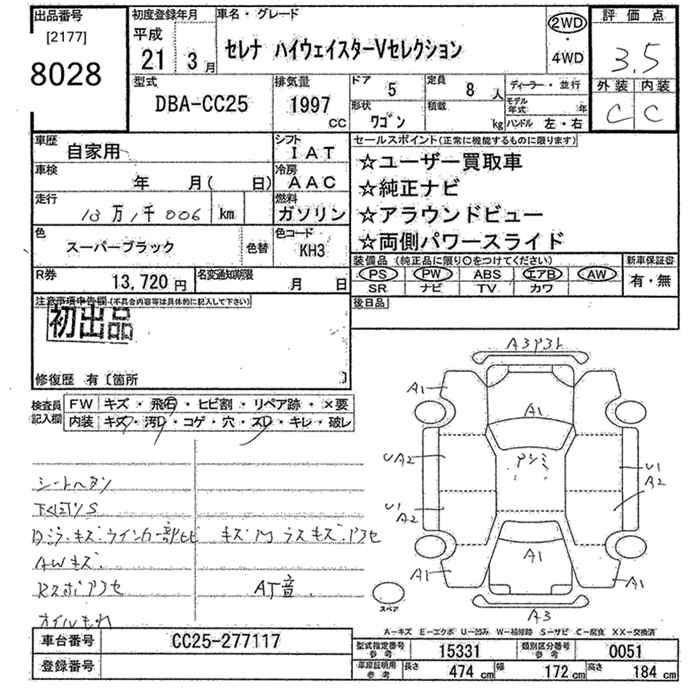 出品番号
[2177]
8028
初度登録年月
平成
21 3月
車名・グレード
セレナ ハイウェイスターVセレクション
2WD
・
4WD
評価点
3.5
外装 内装
C C
型式
DBA-CC25
排気量
1997 CC
ドア 5
定員 8人
ディーラー・並行
形状 ワゴン
積載 kg
モデル年式 年
ハンドル 左・右
車歴 自家用
シフト IAT
車検 年 月( 日)
冷房 AAC
走行 10万1千006 km
燃料 ガソリン
色 スーパーブラック
色替
色コード KH3
R券 13,720円
名変通知期限 月 日
セールスポイント(正常に機能するものに限ります)
☆ユーザー買取車
☆純正ナビ
☆アラウンドビュー
☆両側パワースライド
装備品(純正品に限り○をつけてください)
PS PW ABS エアB AW
SR ナビ TV カワ
新車保証書
有・無
後日品
注意事項申告欄(不具合内容等は具体的に記入して下さい)
初出品
修復歴 有〔箇所 〕
検査員記入欄
FW キズ・飛石・ヒビ割・リペア跡・×要
内装 キズ・汚D・コゲ・穴・スD・キレ・破レ
シートヘタリ
下回りS
AWキズ
AT音
オイルもれ
A1
A1
A1
UA2
U1
A2
U1
A2
A1
A1
A1
A3
スペア
A-キズ E-エクボ U-凹み W-補修跡 S-サビ C-腐食 XX-交換済
車台番号 CC25-277117
登録番号
型式指定番号 参考 15331
類別区分番号 参考 0051
車庫証明用 参考 長さ 474 cm 幅 172 cm 高さ 184 cm